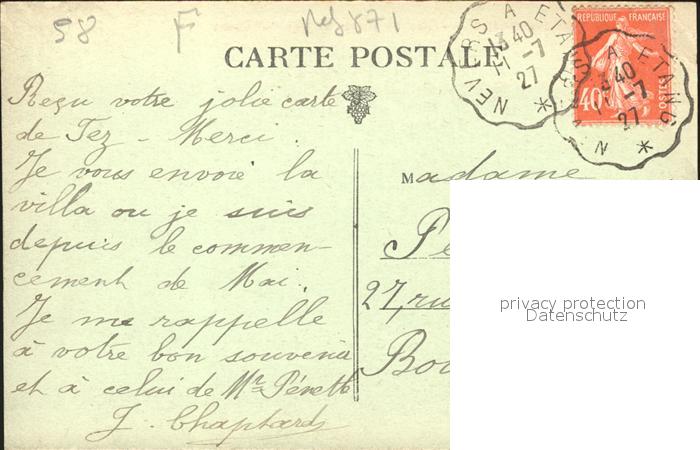 58 F Ref 871
CARTE POSTALE
NEVERS A ETANG
3 40
11 -7
27
*
REPUBLIQUE FRANÇAISE
40c
POSTES
NEVERS A ETANG
3 40
11 -7
27
*
Reçu votre jolie carte
de Fez - Merci.
Je vous envoie la
villa ou je suis
depuis le commen-
cement de Mai.
Je me rappelle
à votre bon souvenir
et à celui de Mr
J. Chaptard
Madame
27, rue
privacy protection
Datenschutz